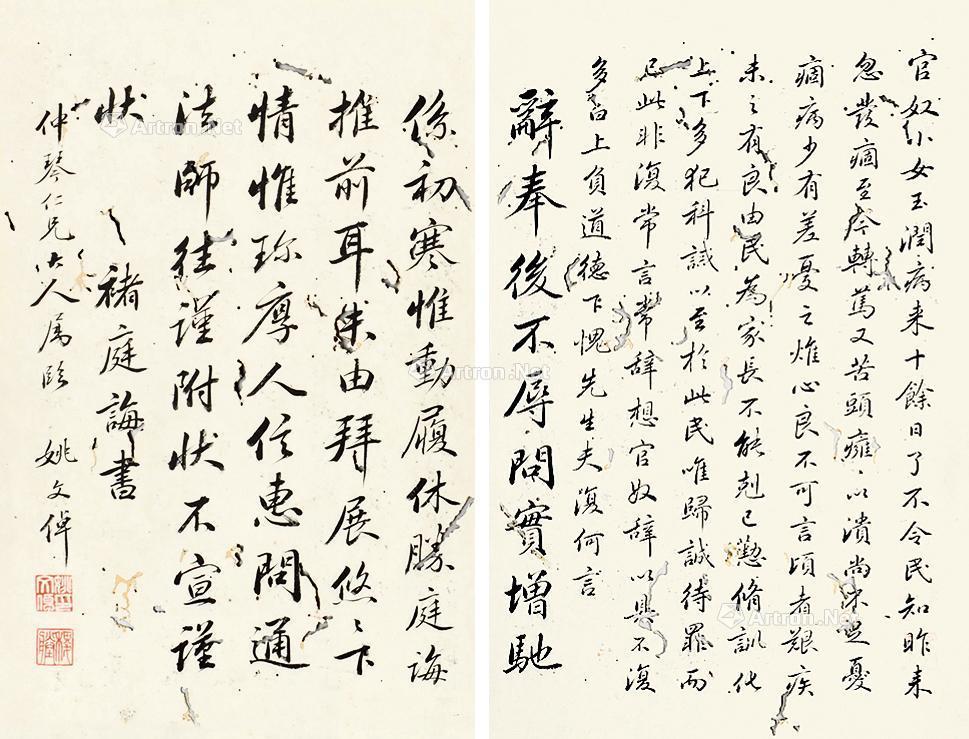 官奴小女玉潤病来十餘日了不令民知昨来
忽發痼至今轉篤又苦頭癰以潰尚未足憂
痼病少有差憂之燋心良不可言頃者艱疾
未之有良由民為家長不能剋己懃脩訓化
上下多犯科誡以至於此民唯歸誠待罪而
已此非復常言常辭想官奴辭以具不復
多白上負道德下愧先生夫復何言
辭奉後不辱問實增馳
係初寒惟動履休勝庭誨
推前耳未由拜展悠〻下
情惟珎厚人信惠問通
法師往謹附状不宣謹
状 褚庭誨書
仲琴仁兄大人属臨 姚文倬
Artron.Net
Artron.Net
Artron.Net
Artron.Net
Artron.Net